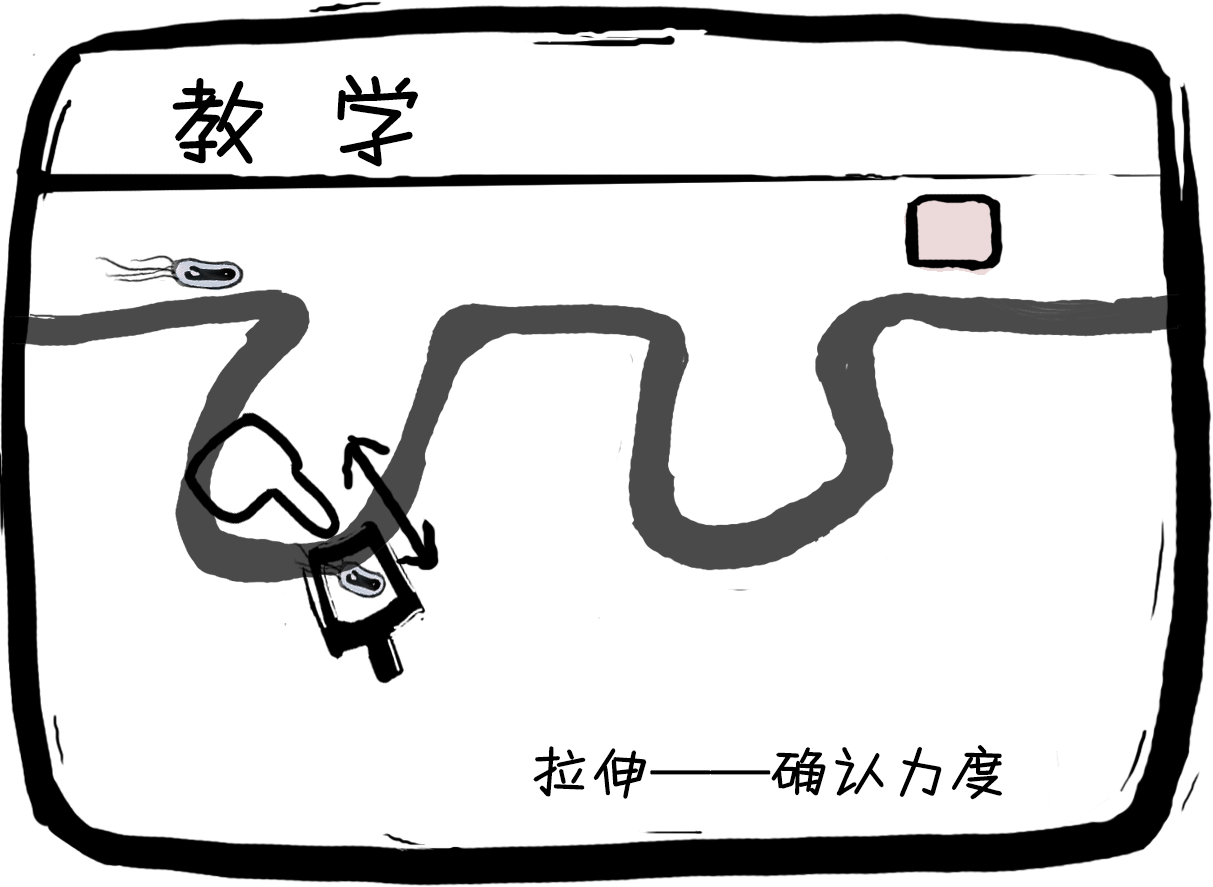 教 学
拉伸——确认力度